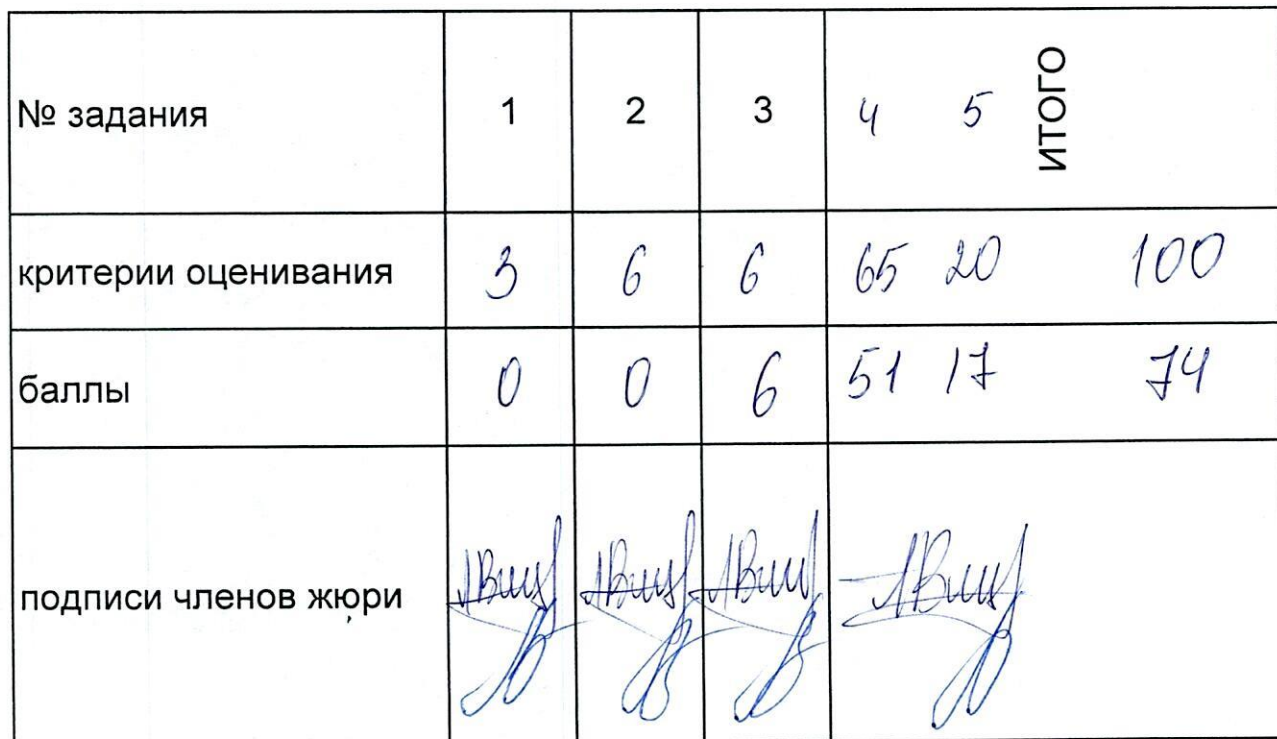 № задания 1 2 3 4 5 ИТОГО
критерии оценивания 3 6 6 65 20 100
баллы 0 0 6 51 17 74
подписи членов жюри